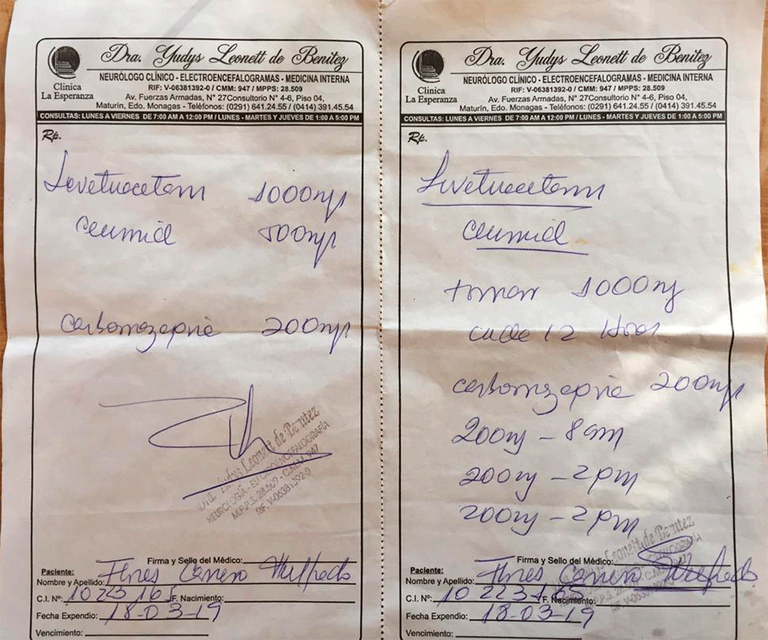 Dra. Yudys Leonett de Benítez
NEURÓLOGO CLÍNICO - ELECTROENCEFALOGRAMAS - MEDICINA INTERNA
RIF: V-06381392-0 / CMM: 947 / MPPS: 28.509
Clinica
La Esperanza
Av. Fuerzas Armadas, N° 27Consultorio N° 4-6, Piso 04,
Maturin, Edo. Monagas - Teléfonos: (0291) 641.24.55 / (0414) 391.45.54
CONSULTAS: LUNES A VIERNES DE 7:00 AM A 12:00 PM / LUNES - MARTES Y JUEVES DE 1:00 A 5:00 PM
Rp.
Levetiracetam 1000mg
ceumid 500mg
carbamazepina 200mg
Dra. Yudys Leonett de Benitez
NEUROLOGÍA - ELECTROENCEFALOGRAFÍA
M.P.P.S. 28.509 - C.M.M. 947
RIF. V-06381392-0
Firma y Sello del Médico:
Paciente:
Nombre y Apellido: Flores Carrero Wilfredo
C.I. Nº: F. Nacimiento:
Fecha Expendio: 18-03-19
Vencimiento:
Dra. Yudys Leonett de Benítez
NEURÓLOGO CLÍNICO - ELECTROENCEFALOGRAMAS - MEDICINA INTERNA
RIF: V-06381392-0 / CMM: 947 / MPPS: 28.509
Clinica
La Esperanza
Av. Fuerzas Armadas, N° 27Consultorio N° 4-6, Piso 04,
Maturin, Edo. Monagas - Teléfonos: (0291) 641.24.55 / (0414) 391.45.54
CONSULTAS: LUNES A VIERNES DE 7:00 AM A 12:00 PM / LUNES - MARTES Y JUEVES DE 1:00 A 5:00 PM
Rp.
Levetiracetam
ceumid
tomar 1000mg
cada 12 Horas
carbamazepina 200mg
200mg - 8am
200mg - 2pm
200mg - 2pm
Firma y Sello del Médico:
Paciente:
Nombre y Apellido: Flores Carrero Wilfredo
C.I. Nº: F. Nacimiento:
Fecha Expendio: 18-03-19
Vencimiento: